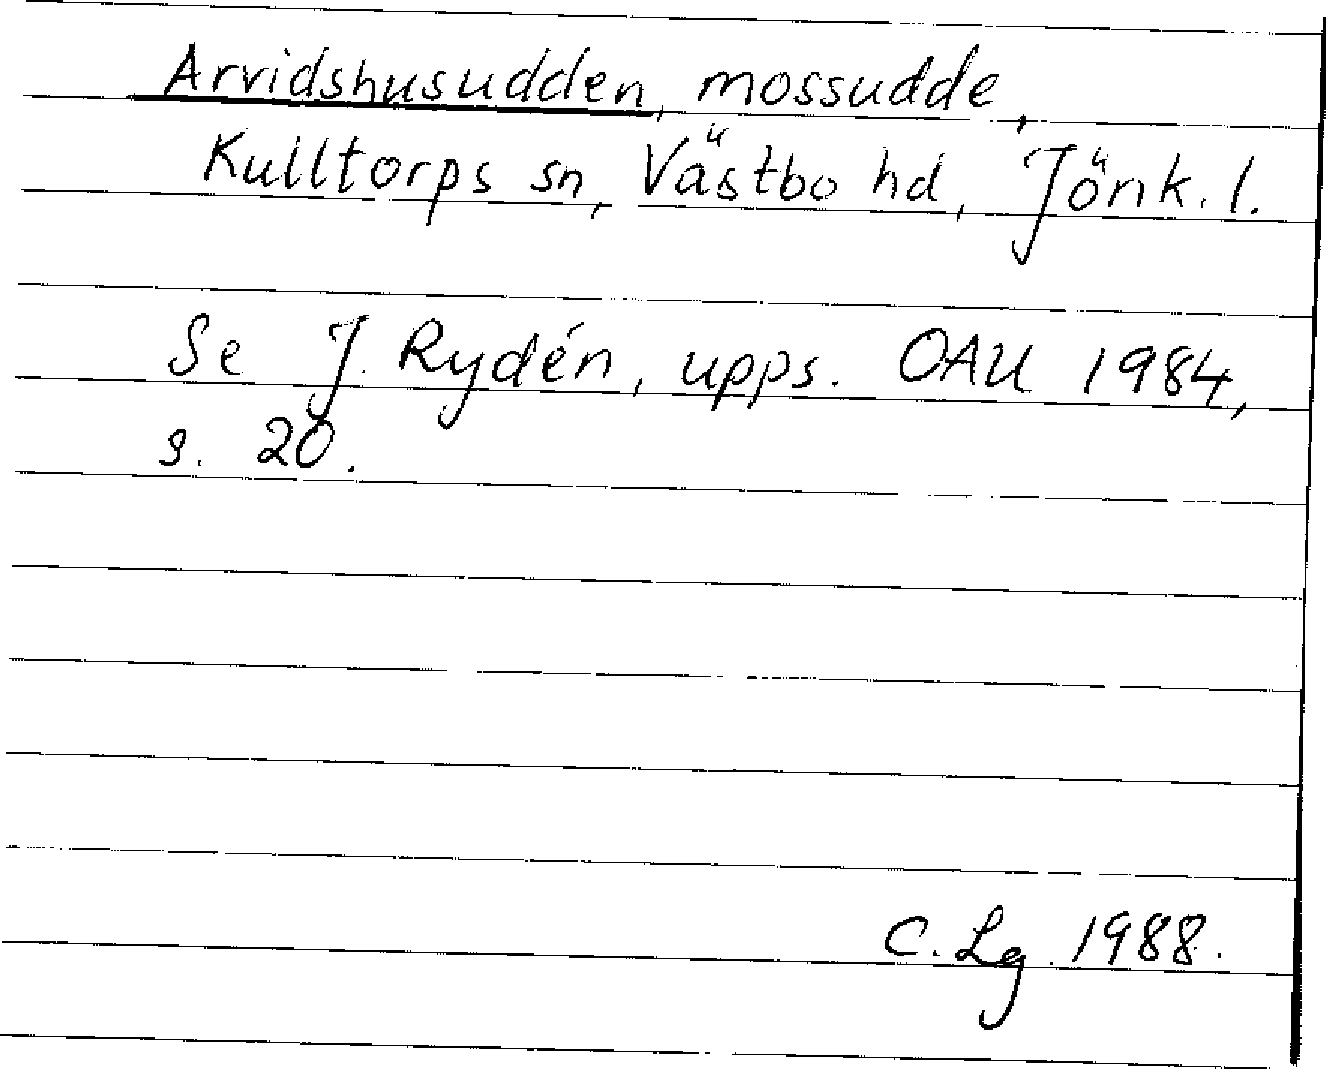 Arvidshusudden, mossudde,
Kulltorps sn, Västbo hd, Jönk. l.
Se J. Rydén, upps. OAU 1984,
s. 20.
C. Lg 1988.